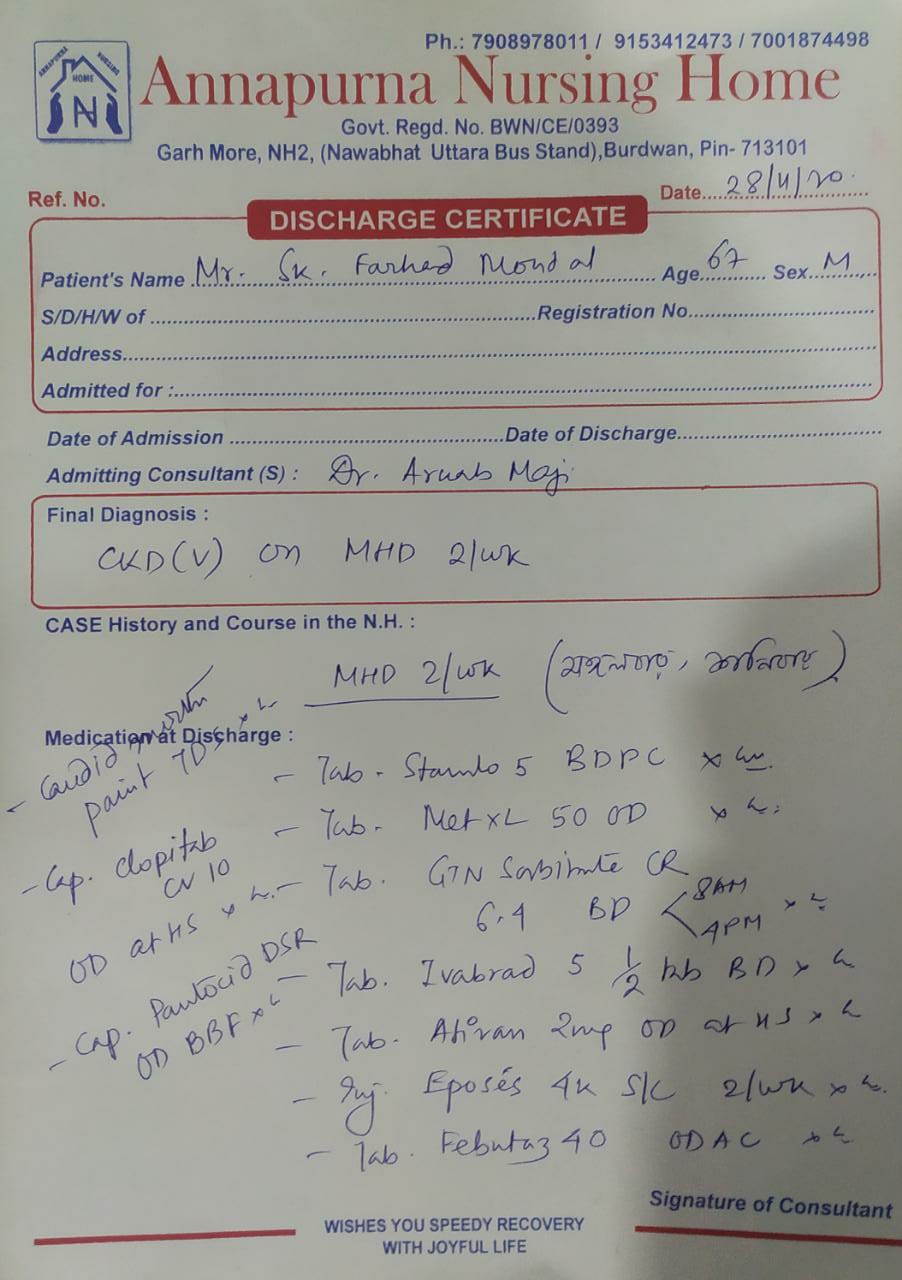 Ph.: 7908978011 / 9153412473 / 7001874498
ANNAPURNA NURSING
HOME
N
Annapurna Nursing Home
Govt. Regd. No. BWN/CE/0393
Garh More, NH2, (Nawabhat Uttara Bus Stand),Burdwan, Pin- 713101
Ref. No.
Date....28/11/20
DISCHARGE CERTIFICATE
Patient's Name Mr. Sk. Farhad Mondal Age 67 Sex M
S/D/H/W of Registration No.
Address
Admitted for :
Date of Admission Date of Discharge
Admitting Consultant (S) : Dr. Arnab Maji
Final Diagnosis :
CKD (V) on MHD 2/wk
CASE History and Course in the N.H. :
MHD 2/wk (মঙ্গলবার, শনিবার)
Medication at Discharge :
- Candid mouth
paint TDS x
- Cap. Clopitab
CV 10
OD at HS x
- Cap. Pantocid DSR
OD BBF x
- Tab. Stamlo 5 BDPC x
- Tab. Met XL 50 OD x
- Tab. GTN Sorbitrate CR
6.4 BD 8AM
4PM x
- Tab. Ivabrad 5 1/2 tab BD x
- Tab. Ativan 2mg OD at HS x
- Inj. Eposés 4K S/C 2/wk x
- Tab. Febutaz 40 ODAC x
Signature of Consultant
WISHES YOU SPEEDY RECOVERY
WITH JOYFUL LIFE